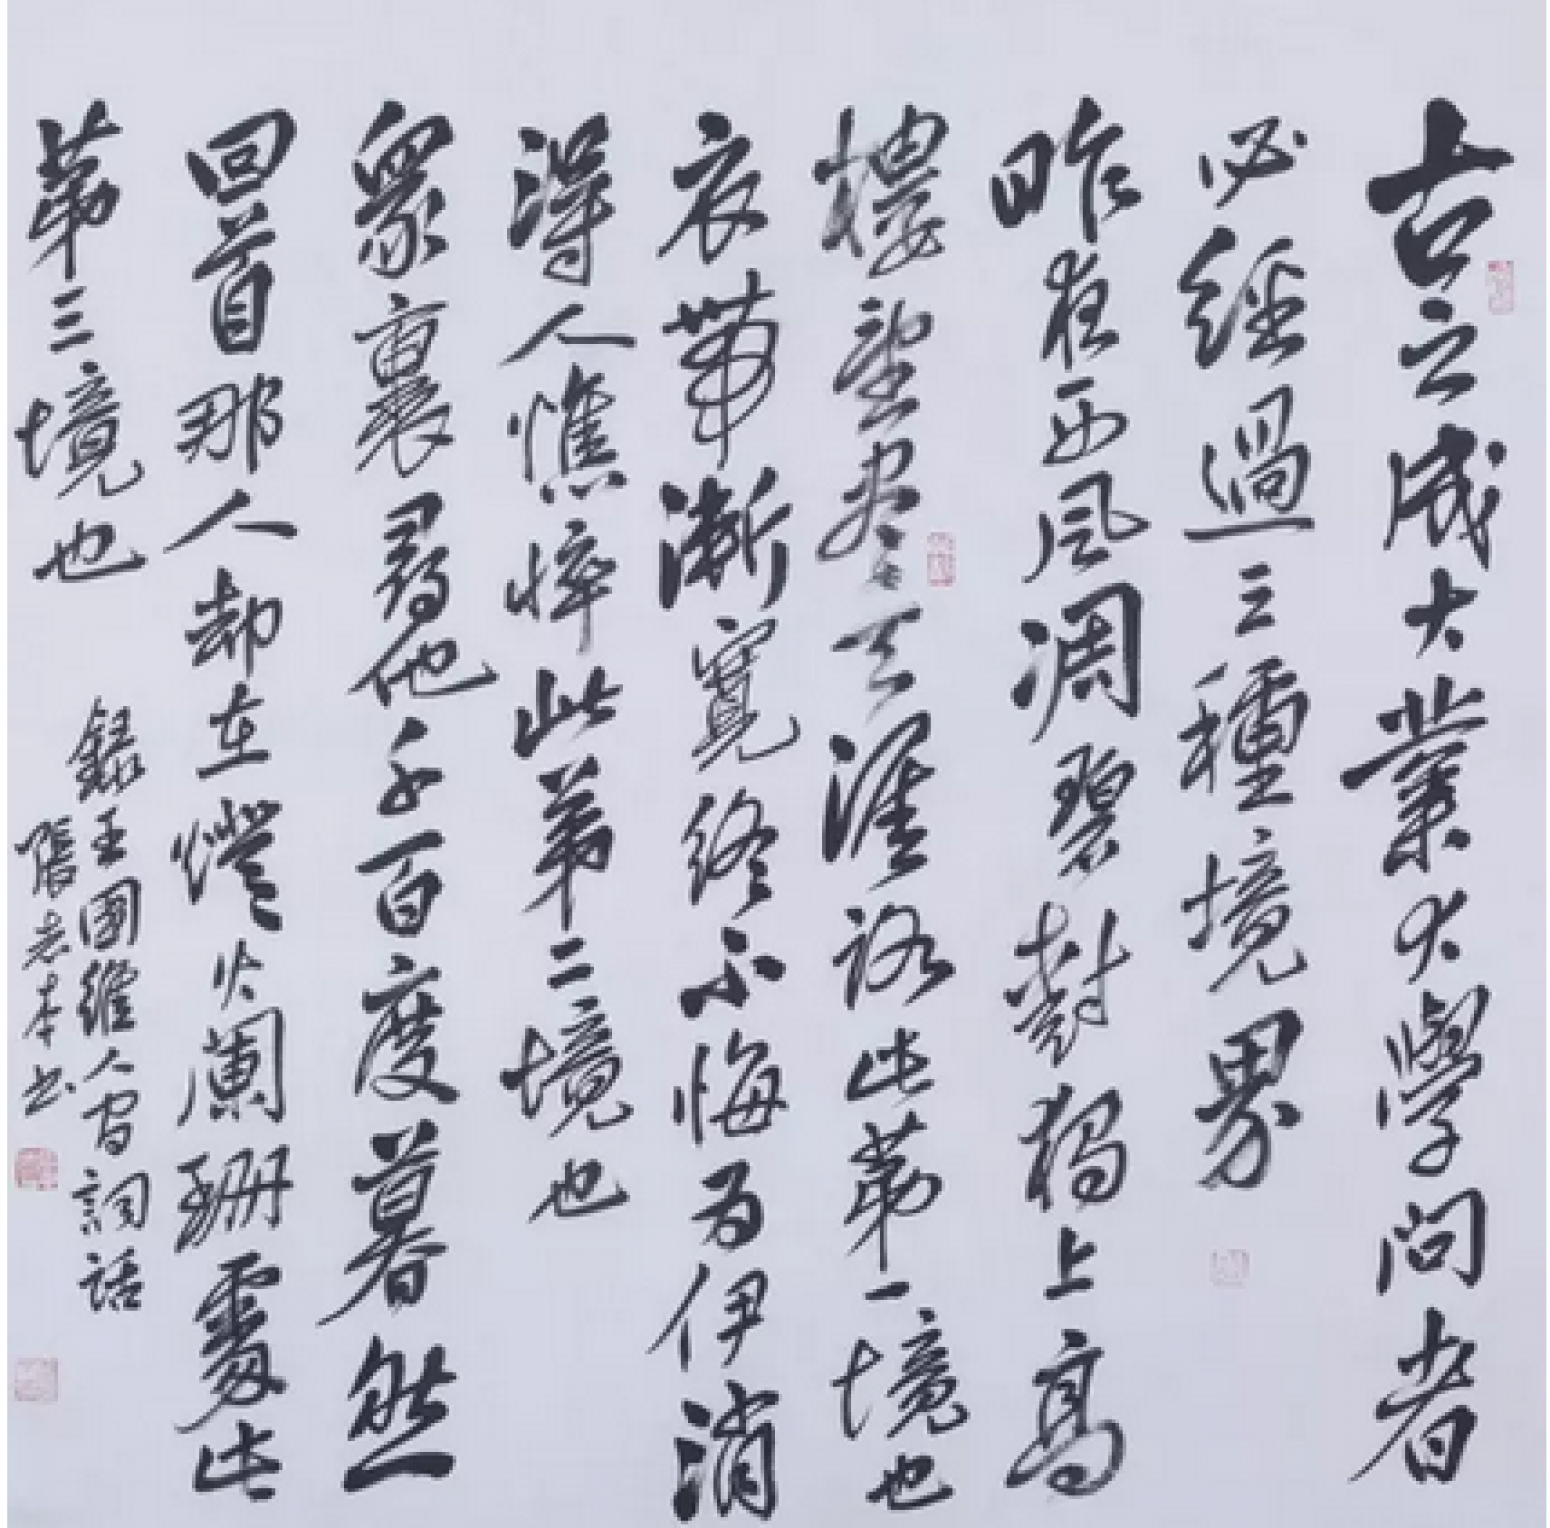 古之成大業大學問者
必經過三種境界
昨夜西風凋碧樹獨上高
樓望盡天涯路此第一境也
衣帶漸寬終不悔為伊消
得人憔悴此第二境也
衆裏尋他千百度暮然
回首那人却在燈火闌珊處此
第三境也
錄王國維人間詞話
張本書